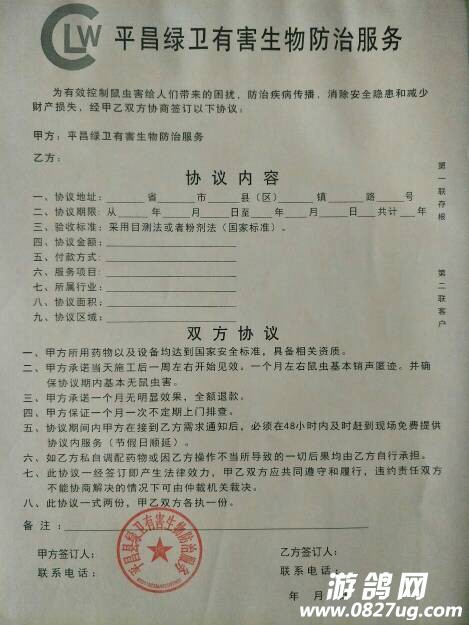 CLW 平昌绿卫有害生物防治服务
为有效控制鼠虫害给人们带来的困扰，防治疾病传播、消除安全隐患和减少
财产损失、经甲乙双方协商签订以下协议：
甲方：平昌绿卫有害生物防治服务
乙方：
协议内容
一、协议地址：______省______市______县（区）______镇______路______号
二、协议期限：从______年____月____日至____年____月____日____共计____年
三、验收标准：采用目测法或者粉剂法（国家标准）。
四、协议金额：
五、付款方式：
六、服务项目：
七、所属行业：
八、协议面积：
九、协议区域：
第一联存根
第二联客户
双方协议
一、甲方所用药物以及设备均达到国家安全标准，具备相关资质。
二、甲方承诺当天施工后一周左右开始见效。一个月左右鼠虫基本销声匿迹。并确
保协议期内基本无鼠虫害。
三、甲方承诺一个月无明显效果，全额退款。
四、甲方保证一个月一次不定期上门排查。
五、协议期间内甲方在接到乙方需求通知后，必须在48小时内及时赶到现场免费提供
协议内服务（节假日顺延）。
六、如乙方私自调配药物或因乙方操作不当所导致的一切后果均由乙方自行承担。
七、此协议一经签订即产生法律效力，甲乙双方应共同遵守和履行，违约责任双方
不能协商解决的情况下可由仲裁机关裁决。
八、此协议一式两份，甲乙双方各执一份。
备注：
甲方签订人：
乙方签订人：
联系电话：
联系电话：
平昌县绿卫有害生物防治服务
年 月 日
游鸽网
www.0827ug.com